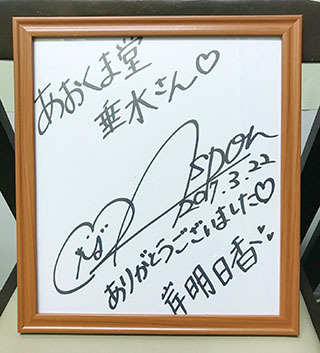 あおくま堂
垂水さん♡
aspon
2017.3.22
ありがとうございました♡
岸明日香